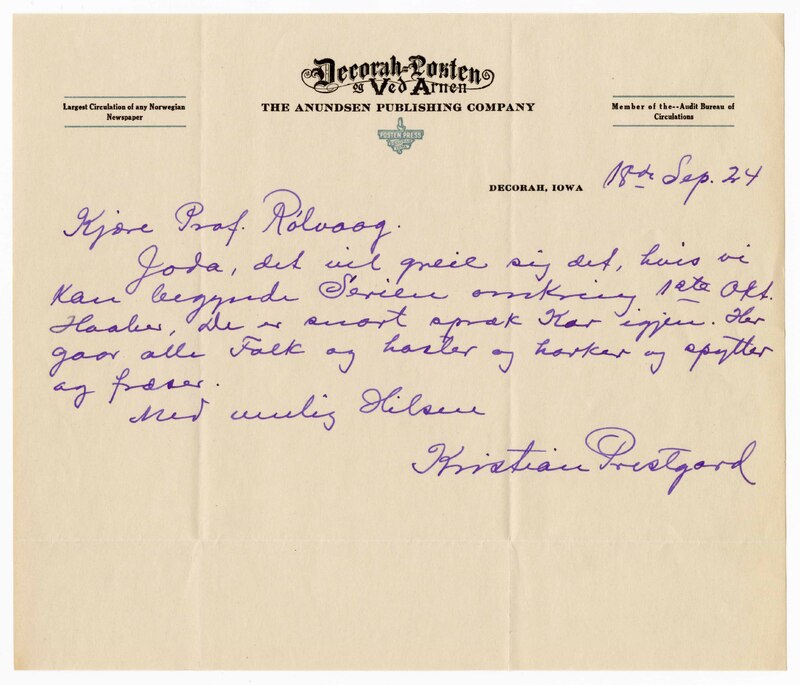 Decorah-Posten
og Ved Arnen
THE ANUNDSEN PUBLISHING COMPANY
Largest Circulation of any Norwegian
Newspaper
Member of the--Audit Bureau of
Circulations
POSTEN PRESS
DECORAH, IOWA 18de Sep. 24
Kjære Prof. Rølvaag.
Joda, det vil greie sig det, hvis vi
kan begynde Serien omkring 1ste Okt.
Haaber, De er snart spræk Kar igjen. Her
gaar alle Folk og hoster og harker og spytter
og fræser.
Med venlig Hilsen
Kristian Prestgard